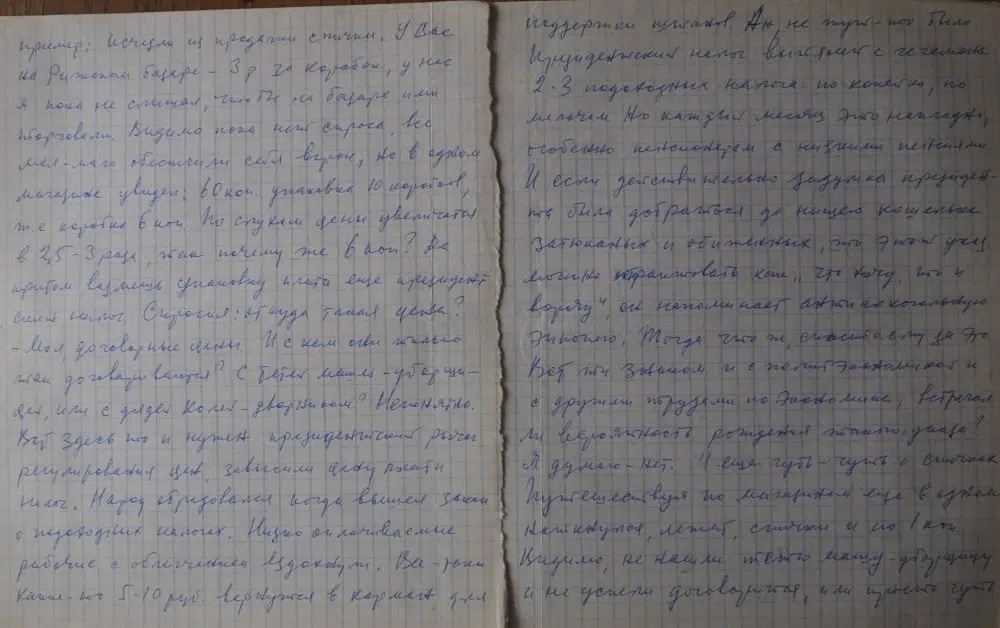 пример: исчезли из продажи спички. У Вас
на Рижском базаре – 3 р за коробок, у нас
я пока не слышал, чтобы на базаре ими
торговали. Видимо пока нет спроса, все
мал-мало обеспечили себя впрок, но в одном
магазине увидел: 60 коп. упаковка 10 коробков,
т.е коробка 6 коп. По слухам цены увеличатся
в 2,5-3 раза, так почему же 6 коп? Да
притом возмешь упаковку плати еще президент
ский налог. Спросил: откуда такая цена?
– Мол, договорные цены. И с кем они только
так договариваются? С тетей машей – уборщи-
цей, или с дядей Колей – дворником? Непонятно.
Вот здесь то и нужен президентский рычаг
регулирования цен, завысили цену плати
налог. Народ обрадовался когда вышел закон
о подоходных налогах. Низко оплачиваемые
рабочие с облегчением вздохнули. Все-таки
какие-то 5-10 руб. вернутся в карман для
поддержки штанов. Ан, не тут-то было.
Президентский налог вытянет с
2-3 подоходных налога по копейки, по
мелочам. Но каждый месяц это накладно,
особенно пенсионерам с низкими пенсиями.
И если действительно задумка президен-
та была добраться до нищего кошелька
затюканых и обиженных, то этот указ
можно трактовать как „что хочу, то и
ворочу", он напоминает антиалкогольную
эпопею. Тогда что ж, спасибо ему за это.
Вот ты знаком и с политэкономикой и
с другими трудами по экономике, встречал
ли вероятность рождения такого указа?
Я думаю – нет. И еще чуть-чуть о спичках
Путешествуя по магазинам еще в одном
наткнулся, лежат, спички и по 1 коп.
Видимо, не нашли тетю машу-уборщицу
и не успели договориться, или просто чуть